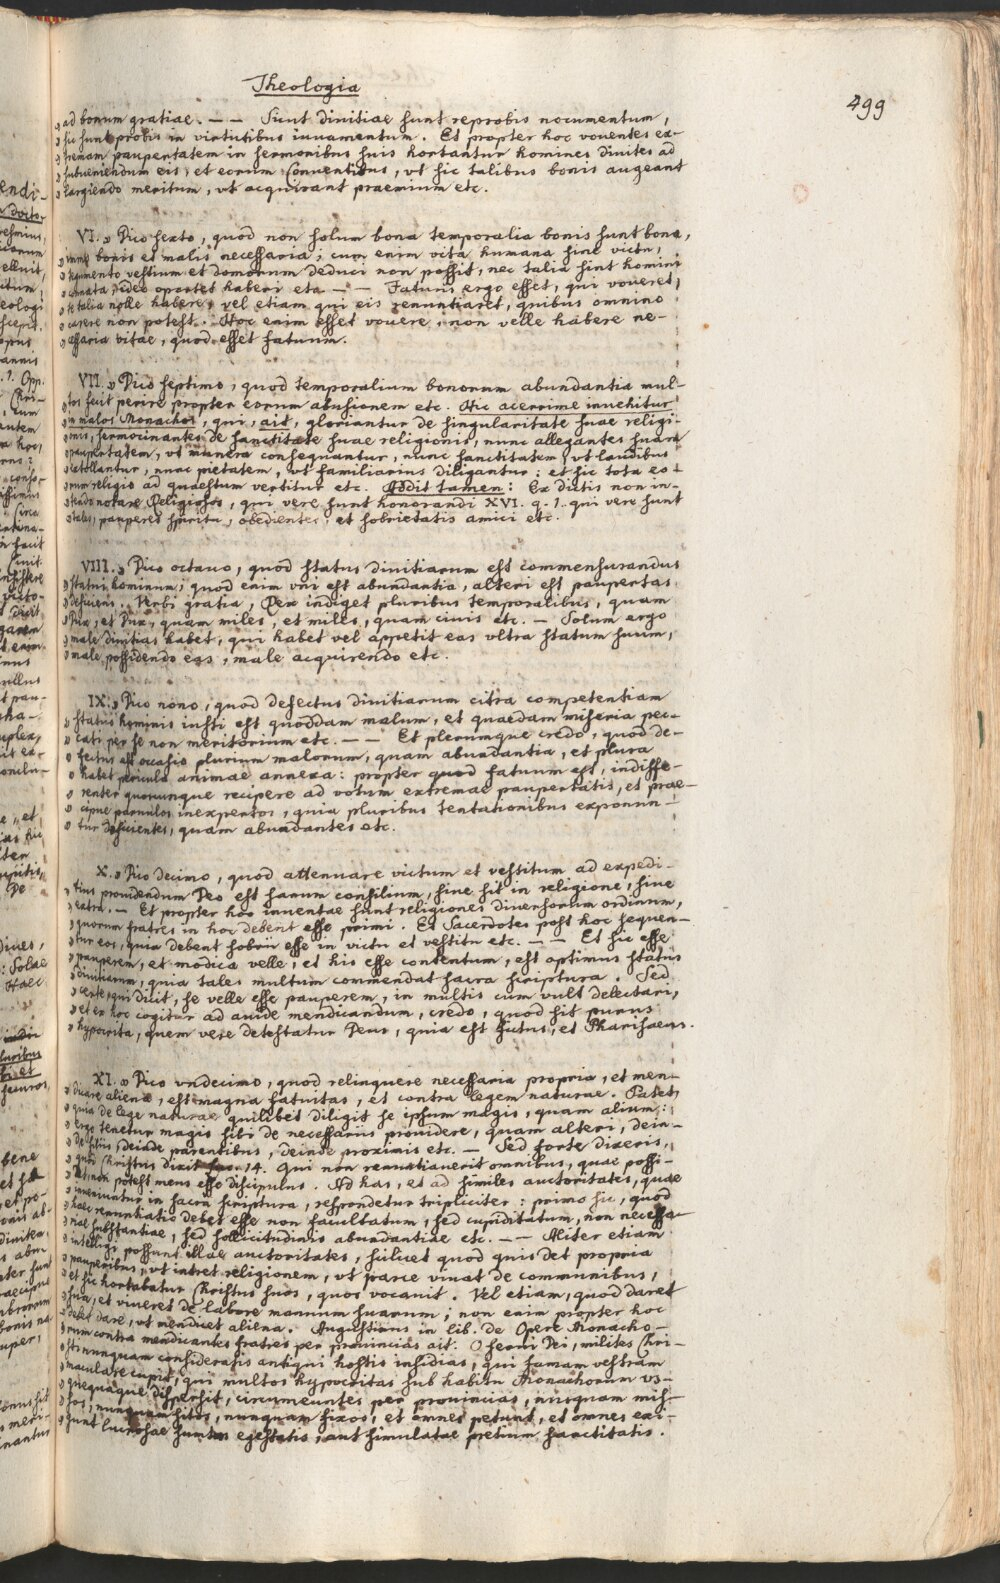 Theologia
499
„ ad bonum gratiae. — — Sicut divitiae sunt reprobis nocumentum,
„ sic sunt probis in virtutibus iuuamentum. Et propter hoc vouentes ex-
„ tremam paupertatem in sermonibus suis hortantur homines diuites ad
„ subueniendum eis, et eorum Conuentibus, vt sic talibus bonis augeant
„ largiendo meritum, vt acquirant praemium etc.
VI. „ Dico sexto, quod non solum bona temporalia bonis sunt bona,
„ immo bonis et malis necessaria; cum enim vita humana sine victu,
„ tegumento vestium et domorum deduci non possit, nec talia sint homini
„ connata, ideo oportet haberi eta — — Fatuus ergo esset, qui voueret,
„ se talia nolle habere, vel etiam qui eis renuntiaret, quibus omnino
„ carere non potest. Hoc enim esset vouere, non velle habere ne-
„ cessaria vitae, quod esset fatuum.
VII. „ Dico septimo, quod temporalium bonorum abundantia mul-
„ tos fecit perire propter eorum abusionem etc. Hic acerrime inuehitur
in malos Monachos, qui, ait, gloriantur de singularitate suae religi-
„ onis, sermocinantes de sanctitate suae religionis, nunc allegantes suam
„ paupertatem, vt munera consequantur, nunc sanctitatem, vt laudibus
„ extollantur, nunc pietatem, vt familiarius diligantur: et sic tota eo-
„ rum religio ad quaestum vertitur etc. Addit tamen: Ex dictis non in-
„ tendo notare Religiosos, qui vere sunt honorandi XVI. q. 1. qui vere sunt
„ tales, pauperes spiritu, obedientes, et sobrietatis amici etc.
VIII. „ Dico octauo, quod status diuitiarum est commensurandus
„ statui hominum; quod enim vni est abundantia, alteri est paupertas
„ deficiens. Verbi gratia, Rex indiget pluribus temporalibus, quam
„ Dux, et Dux, quam miles, et miles, quam ciuis etc. — Solum ergo
„ male diuitias habet, qui habet vel appetit eas vltra statum suum,
„ male possidendo eas, male acquirendo etc.
IX. „ Dico nono, quod defectus diuitiarum citra competentiam
„ status hominis iusti est quoddam malum, et quaedam miseria pec-
„ cati per se non meritorium etc. — — Et plerumque credo, quod de-
„ fectus est occasio plurium malorum, quam abundantia, et plura
„ habet pericula animae annexa: propter quod fatuum est, indiffe-
„ renter quoscunque recipere ad votum extremae paupertatis, et prae-
„ cipue paruulos inexpertos, quia pluribus tentationibus exponun-
„ tur deficientes, quam abundantes etc.
X. „ Dico decimo, quod attenuare victum et vestitum ad expedi-
„ tius prouidendum Deo est sanum consilium, siue sit in religione, siue
„ extra. — Et propter hoc inuentae sunt religiones diuersorum ordinum,
„ quorum fratres in hoc debent esse primi. Et Sacerdotes post hoc sequen-
„ tur eos, quia debent sobrii esse in victu et vestitu etc. — — Et sic esse
„ pauperem, et modica velle, et his esse contentum, est optimus status
„ diuitiarum, quia tales multum commendat sacra scriptura. Sed
„ certe, qui dicit, se velle esse pauperem, in multis cum vult delectari,
„ et ex hoc cogitur ad auide mendicandum, credo, quod sit purus
„ hypocrita, quem vere detestatur Deus, quia est fictus, et Pharisaeus.
XI. „ Dico vndecimo, quod relinquere necessaria propria, et men-
„ dicare aliena, est magna fatuitas, et contra legem naturae. Patet,
„ quia de lege naturae quilibet diligit se ipsum magis, quam alium:
„ Ergo tenetur magis sibi de necessariis prouidere, quam alteri, dein-
„ de filiis, deinde parentibus, deinde proximis etc. — Sed forte dixeris,
„ quod Christus dixit Luc. 14. Qui non renuntiauerit omnibus, quae possi-
„ det, non potest meus esse discipulus. Ad has, et ad similes auctoritates, quae
„ inueniuntur in sacra scriptura, respondetur tripliciter: primo sic, quod
„ haec renuntiatio debet esse non facultatum, sed cupiditatum, non necessa-
„ riae substantiae, sed sollicitudinis abundantiae etc. — — Aliter etiam
„ intelligi possunt illae auctoritates, scilicet quod quis det propria
„ pauperibus, vt intret religionem, vt parce viuat de communibus,
„ et sic hortabatur Christus suos, quos vocauit. Vel etiam, quod daret
„ sua, et viueret de labore manuum suarum; non enim propter hoc
„ debet dare, vt mendicet aliena. Augustinus in lib. de Opere Monacho-
„ rum contra mendicantes fratres per prouincias ait: O serui Dei, milites Chri-
„ sti nunquam consideratis antiqui hostis insidias, qui famam vestram
„ maculare cupit, qui multos hypocritas sub habitu Monachorum vs-
„ quequaque dispersit, circumeuntes per prouincias, nusquam mis-
„ sos, nunquam sitos, nunquam fixos, et omnes petunt, et omnes exi-
„ gunt lucrosae sumtus egestatis, aut simulatae pretium sanctitatis.